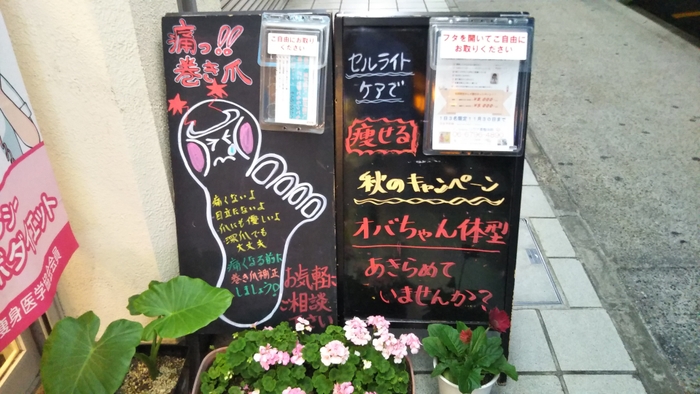 痛っ!!
巻き爪
ご自由にお取り
ください
痛くないよ
目立たないよ
爪にも優しいよ
深爪でも
大丈夫
痛くなる前に
巻き爪補正
しましょう!
お気軽に
ご相談
下さい
セルライト
ケアで
痩せる
秋のキャンペーン
オバちゃん体型
あきらめて
いませんか?
フタを開いてご自由に
にお取りください
痩身医学協会会員